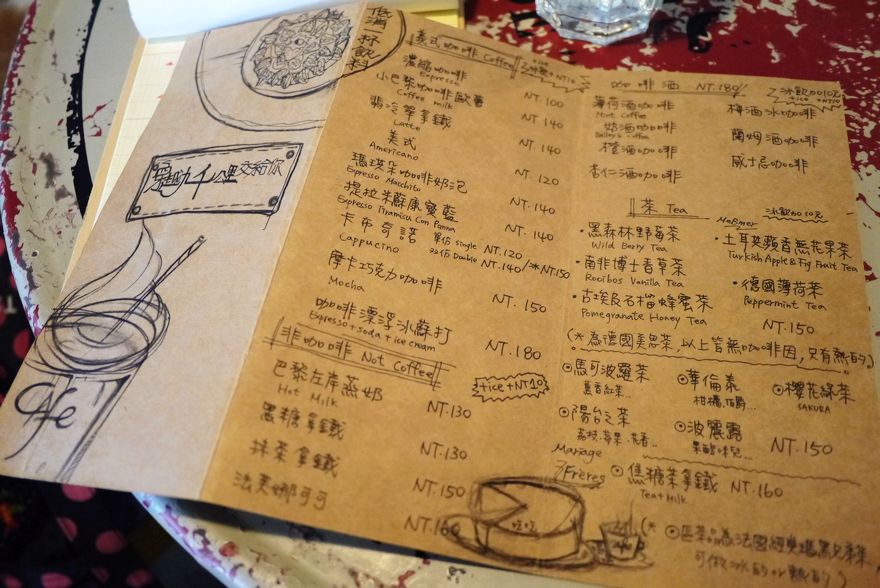 低消一杯飲料
CAFE
義式咖啡 Coffee
濃縮咖啡
Espresso
NT.100
小巴黎咖啡歐蕾
Coffee milk
NT.140
翡冷翠拿鐵
Latte
NT.140
美式
Americano
NT.120
瑪琪朵咖啡奶泡
Espresso Macchiato
NT.140
提拉米蘇康寶藍
Espresso Tiramisu Con Panna
NT.140
卡布奇諾
Cappucino
單份 Single NT.120
双份 Double NT.140/*NT.150
摩卡巧克力咖啡
Mocha
NT.150
咖啡漂浮冰蘇打
Espresso+soda+ice cream
NT.180
非咖啡 Not Coffee
+ice+NT10
巴黎左岸蒸奶
Hot Milk
NT.130
黑糖拿鐵
NT.130
抹茶拿鐵
NT.150
法芙娜可可
NT.160
咖啡酒 NT.180
冰飲加10元
+ice+NT10
薄荷酒咖啡
Mint Coffee
奶酒咖啡
Bailey's Coffee
橙酒咖啡
杏仁酒咖啡
梅酒冰咖啡
蘭姆酒咖啡
威士忌咖啡
茶 Tea
冰飲加10元
Meßmer
・黑森林野莓茶
Wild Berry Tea
・土耳其蘋香無花果茶
Turkish Apple & Fig Fruit Tea
・南非博士香草茶
Rooibos Vanilla Tea
・德國薄荷茶
Peppermint Tea
・古埃及石榴蜂蜜茶
Pomegranate Honey Tea
NT.150
(*為德國美思茶，以上皆無咖啡因，只有熱的)
⊙馬可波羅茶
薰香紅茶...
⊙華倫泰
柑橘.佰爵...
⊙櫻花綠茶
SAKURA
⊙陽台之茶
荔枝.莓果.花香...
⊙波麗露
NT.150
Mariage
Frères
⊙焦糖茶拿鐵 NT.160
Tea+Milk
吃吃
可做冰的or熱的)